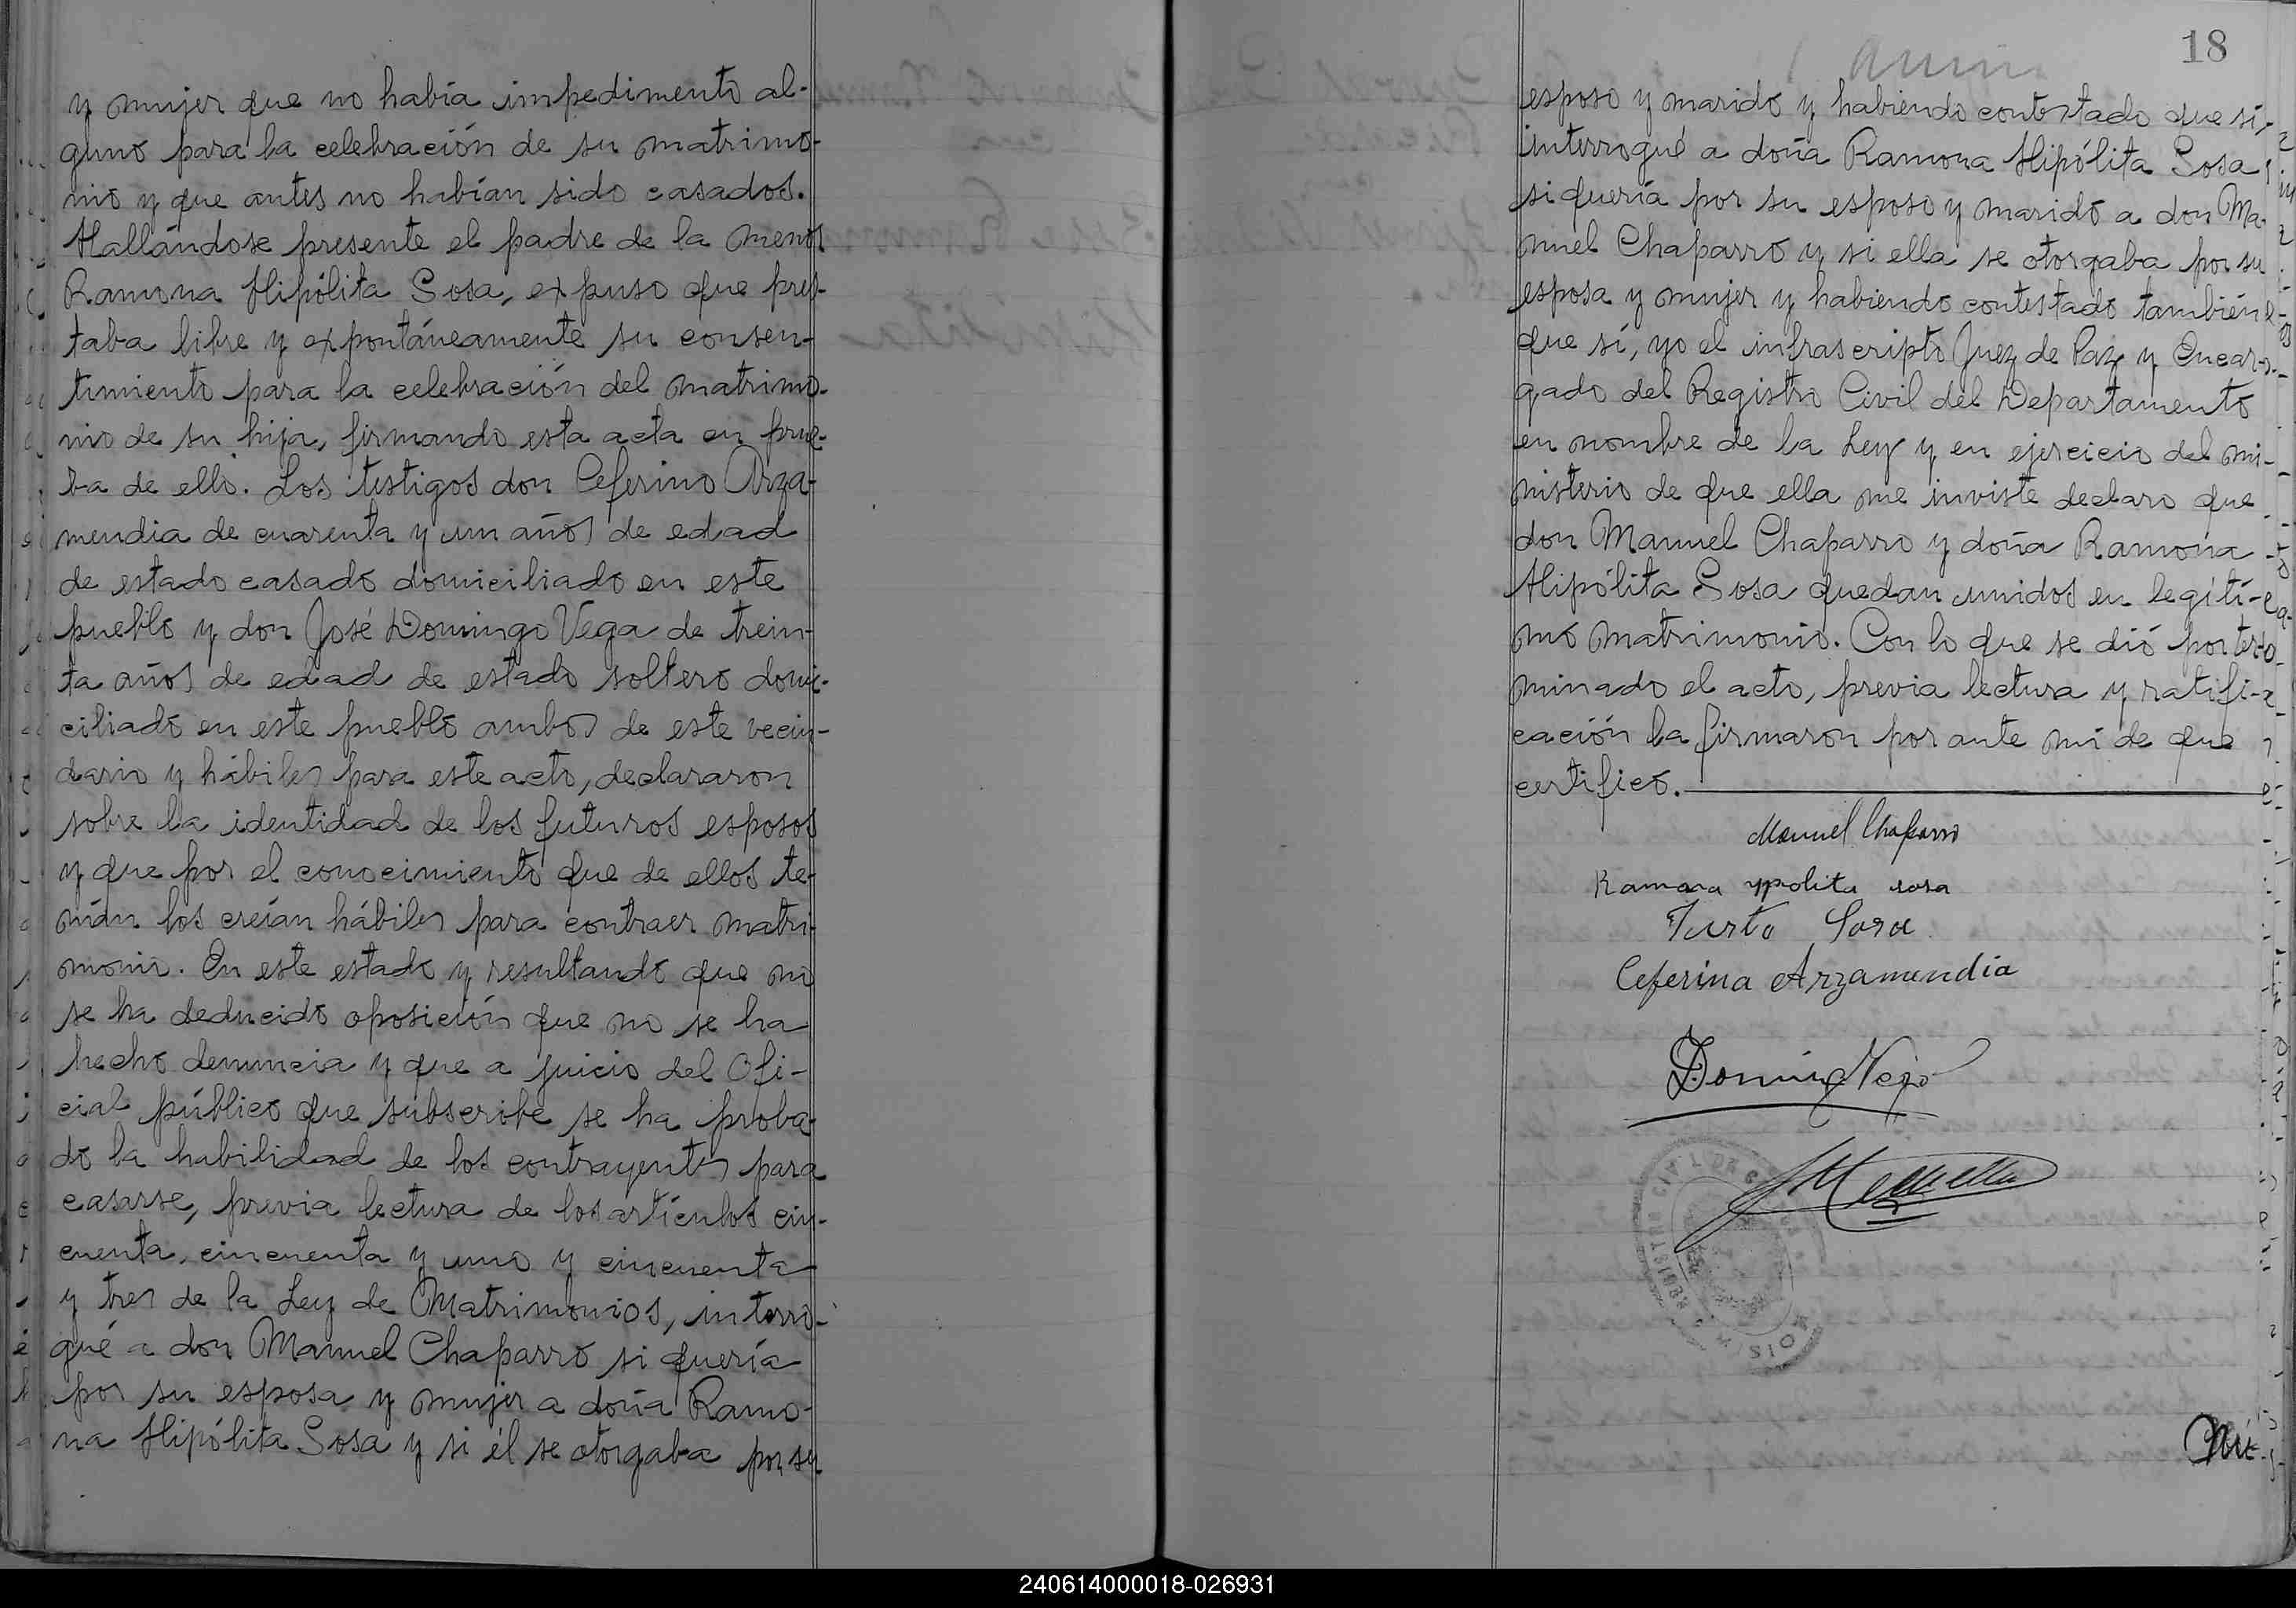 y mujer que no había impedimento al-
guno para la celebración de su matrimo-
nio y que antes no habían sido casados.
Hallándose presente el padre de la menor
Ramona Hipólita Sosa, expuso que pres-
taba libre y expontáneamente su consen-
timiento para la celebración del matrimo-
nio de su hija, firmando esta acta en prue-
ba de ello. Los testigos don Ceferino Arza-
mendia de cuarenta y un años de edad
de estado casado domiciliado en este
pueblo y don José Domingo Vega de trein-
ta años de edad de estado soltero domi-
ciliado en este pueblo ambos de este vecin-
dario y hábiles para este acto, declararon
sobre la identidad de los futuros esposos
y que por el conocimiento que de ellos te-
nían los creían hábiles para contraer matri-
monio. En este estado y resultando que no
se ha deducido oposición que no se ha
hecho denuncia y que a juicio del Ofi-
cial público que subscribe se ha proba-
do la habilidad de los contrayentes para
casarse, previa lectura de los artículos cin-
cuenta, cincuenta y uno y cincuenta
y tres de la Ley de Matrimonios, interro-
gué a don Manuel Chaparro si quería
por su esposa y mujer a doña Ramo-
na Hipólita Sosa y si él se otorgaba por su
18
esposo y marido y habiendo contestado que sí,
interrogué a doña Ramona Hipólita Sosa
si quería por su esposo y marido a don Ma-
nuel Chaparro y si ella se otorgaba por su
esposa y mujer y habiendo contestado también
que sí, yo el infrascripto Juez de Paz y Encar-
gado del Registro Civil del Departamento
en nombre de la Ley y en ejercicio del mi-
nisterio de que ella me inviste declaro que
don Manuel Chaparro y doña Ramona
Hipólita Sosa quedan unidos en legíti-
mo matrimonio. Con lo que se dió por ter-
minado el acto, previa lectura y ratifi-
cación la firmaron por ante mí de que
certifico.
Manuel Chaparro
Ramona ypolita sosa
Justo Sosa
Ceferino Arzamendia
Doming Vega
REGISTRO CIVIL DE
MISIO
240614000018-026931